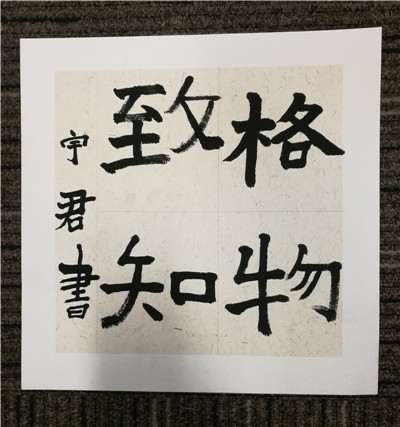 格物
致知
宇君書